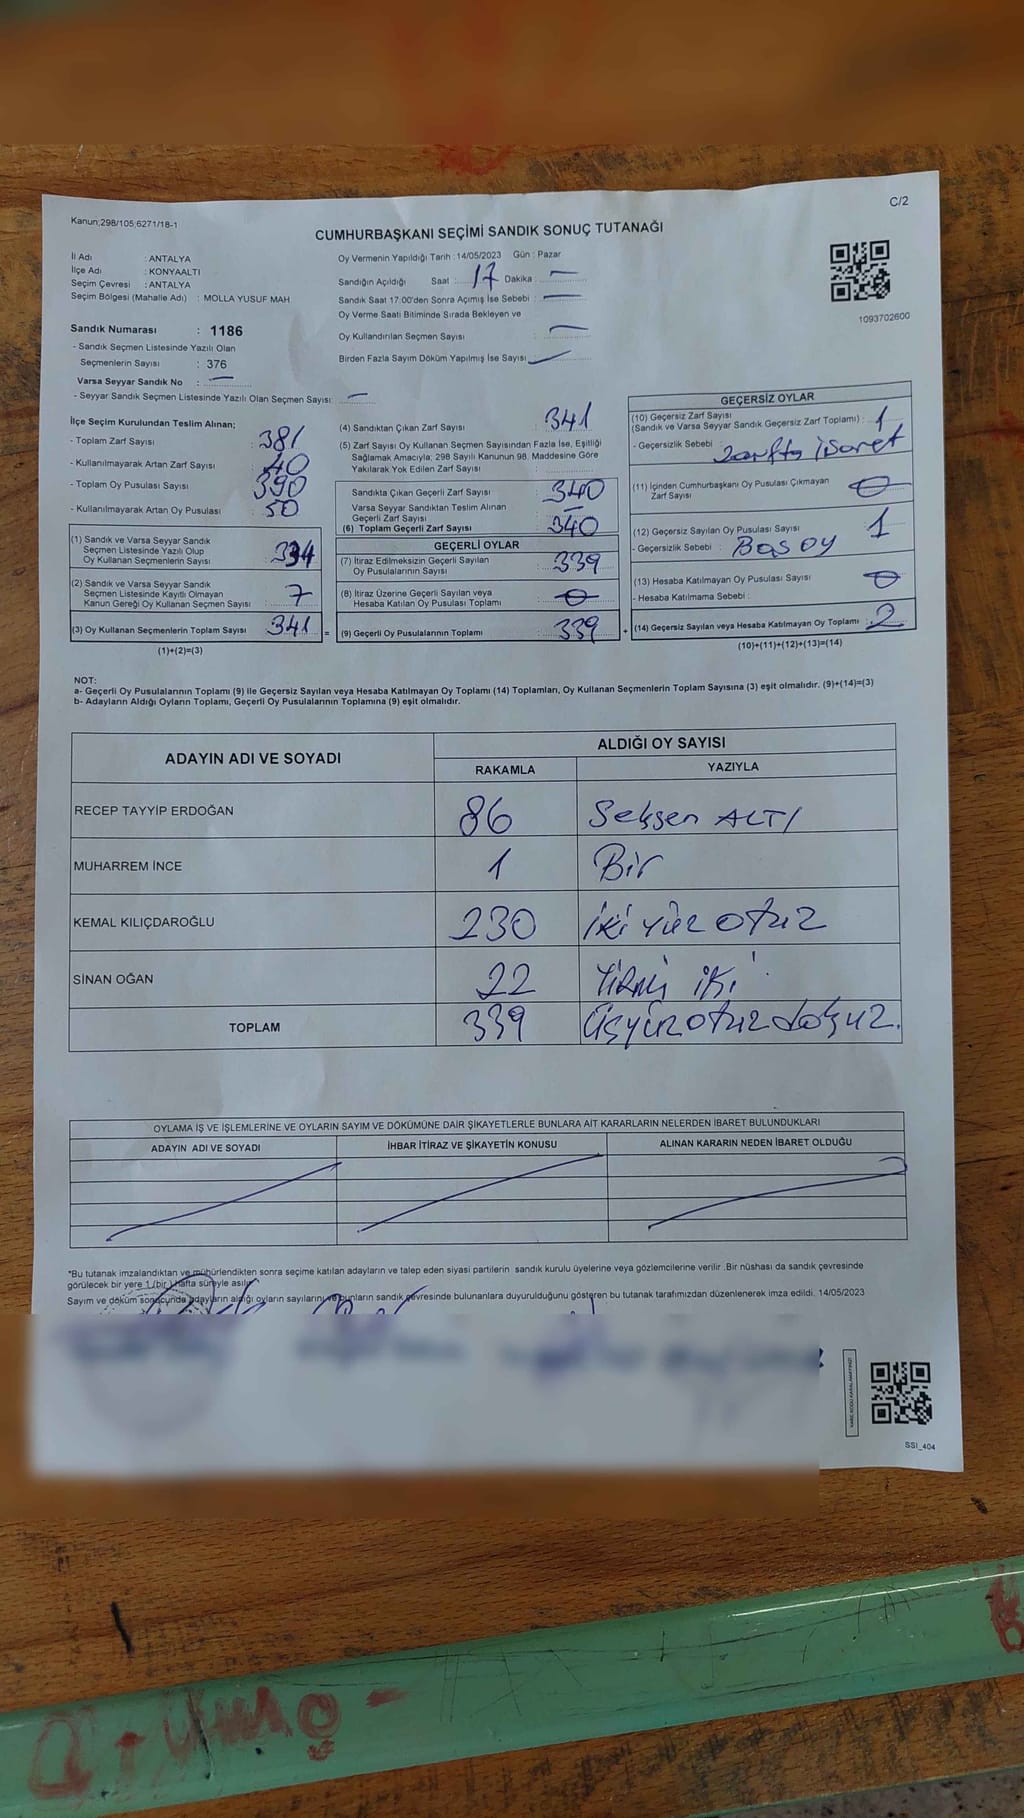 C/2
Kanun;298/105;6271/18-1
CUMHURBAŞKANI SEÇİMİ SANDIK SONUÇ TUTANAĞI
İl Adı : ANTALYA
İlçe Adı : KONYAALTI
Seçim Çevresi : ANTALYA
Seçim Bölgesi (Mahalle Adı) : MOLLA YUSUF MAH
Sandık Numarası : 1186
- Sandık Seçmen Listesinde Yazılı Olan
Seçmenlerin Sayısı : 376
Varsa Seyyar Sandık No : —
- Seyyar Sandık Seçmen Listesinde Yazılı Olan Seçmen Sayısı: —
Oy Vermenin Yapıldığı Tarih : 14/05/2023 Gün : Pazar
Sandığın Açıldığı Saat : 17 Dakika : —
Sandık Saat 17:00'den Sonra Açımış İse Sebebi : —
Oy Verme Saati Bitiminde Sırada Bekleyen ve
Oy Kullandırılan Seçmen Sayısı : —
Birden Fazla Sayım Döküm Yapılmış İse Sayısı : —
1093702600
İlçe Seçim Kurulundan Teslim Alınan;
- Toplam Zarf Sayısı : 381
- Kullanılmayarak Artan Zarf Sayısı : 40
- Toplam Oy Pusulası Sayısı : 390
- Kullanılmayarak Artan Oy Pusulası : 50
(1) Sandık ve Varsa Seyyar Sandık
Seçmen Listesinde Yazılı Olup
Oy Kullanan Seçmenlerin Sayısı : 334
(2) Sandık ve Varsa Seyyar Sandık
Seçmen Listesinde Kayıtlı Olmayan
Kanun Gereği Oy Kullanan Seçmen Sayısı : 7
(3) Oy Kullanan Seçmenlerin Toplam Sayısı : 341 =
(1)+(2)=(3)
(4) Sandıktan Çıkan Zarf Sayısı : 341
(5) Zarf Sayısı Oy Kullanan Seçmen Sayısından Fazla İse, Eşitliği
Sağlamak Amacıyla; 298 Sayılı Kanunun 98. Maddesine Göre
Yakılarak Yok Edilen Zarf Sayısı :
Sandıkta Çıkan Geçerli Zarf Sayısı : 340
Varsa Seyyar Sandıktan Teslim Alınan
Geçerli Zarf Sayısı : —
(6) Toplam Geçerli Zarf Sayısı : 340
GEÇERLİ OYLAR
(7) İtiraz Edilmeksizin Geçerli Sayılan
Oy Pusulalarının Sayısı : 339
(8) İtiraz Üzerine Geçerli Sayılan veya
Hesaba Katılan Oy Pusulası Toplamı : 0
(9) Geçerli Oy Pusulalarının Toplamı : 339 +
GEÇERSİZ OYLAR
(10) Geçersiz Zarf Sayısı
(Sandık ve Varsa Seyyar Sandık Geçersiz Zarf Toplamı) : 1
- Geçersizlik Sebebi : Zarfta işaret
(11) İçinden Cumhurbaşkanı Oy Pusulası Çıkmayan
Zarf Sayısı : 0
(12) Geçersiz Sayılan Oy Pusulası Sayısı : 1
- Geçersizlik Sebebi : Boş oy
(13) Hesaba Katılmayan Oy Pusulası Sayısı : 0
- Hesaba Katılmama Sebebi :
(14) Geçersiz Sayılan veya Hesaba Katılmayan Oy Toplamı : 2
(10)+(11)+(12)+(13)=(14)
NOT:
a- Geçerli Oy Pusulalarının Toplamı (9) ile Geçersiz Sayılan veya Hesaba Katılmayan Oy Toplamı (14) Toplamları, Oy Kullanan Seçmenlerin Toplam Sayısına (3) eşit olmalıdır. (9)+(14)=(3)
b- Adayların Aldığı Oyların Toplamı, Geçerli Oy Pusulalarının Toplamına (9) eşit olmalıdır.
ADAYIN ADI VE SOYADI ALDIĞI OY SAYISI
RAKAMLA YAZIYLA
RECEP TAYYİP ERDOĞAN 86 Seksen ALTI
MUHARREM İNCE 1 Bir
KEMAL KILIÇDAROĞLU 230 iki yüz otuz
SİNAN OĞAN 22 Yirmi iki
TOPLAM 339 Üçyüzotuzdokuz.
OYLAMA İŞ VE İŞLEMLERİNE VE OYLARIN SAYIM VE DÖKÜMÜNE DAİR ŞİKAYETLERLE BUNLARA AİT KARARLARIN NELERDEN İBARET BULUNDUKLARI
ADAYIN ADI VE SOYADI İHBAR İTİRAZ VE ŞİKAYETİN KONUSU ALINAN KARARIN NEDEN İBARET OLDUĞU
*Bu tutanak imzalandıktan ve mühürlendikten sonra seçime katılan adayların ve talep eden siyasi partilerin sandık kurulu üyelerine veya gözlemcilerine verilir .Bir nüshası da sandık çevresinde
görülecek bir yere 1 (bir ) hafta süreyle asılır.
Sayım ve döküm sonucunda adayların aldığı oyların sayılarını ve bunların sandık çevresinde bulunanlara duyurulduğunu gösteren bu tutanak tarafımızdan düzenlenerek imza edildi. 14/05/2023
SSI_404